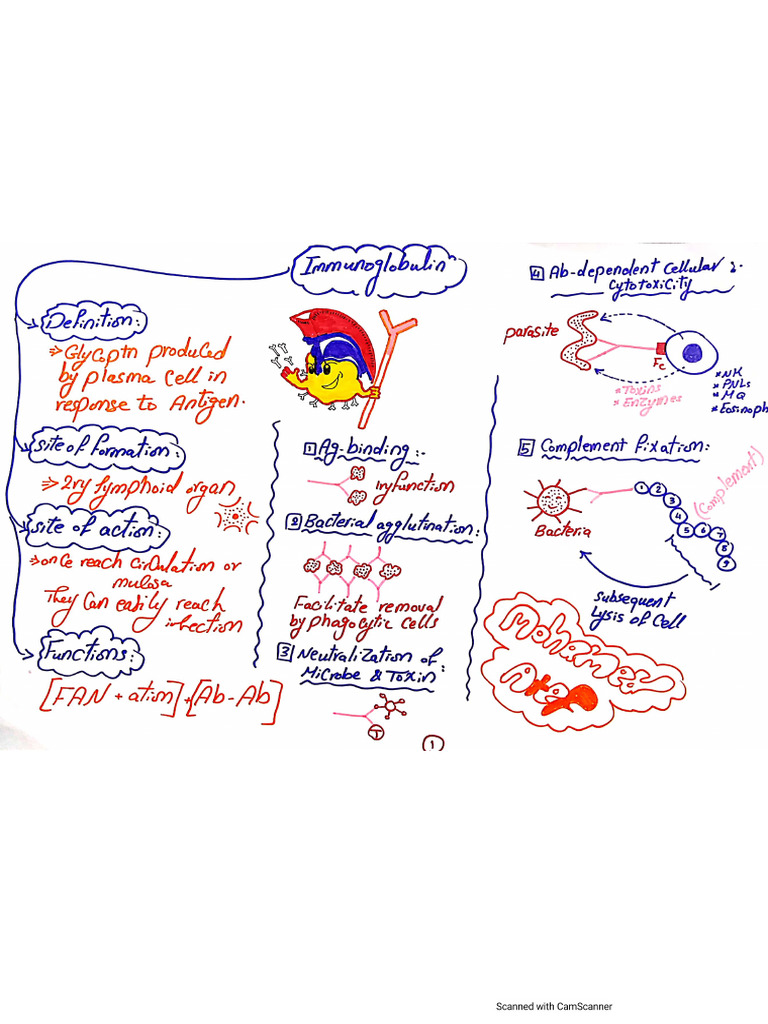 Immunoglobulin
Definition:
⇒ Glycoptn produced
by plasma cell in
response to Antigen.
site of formation:
⇒ 2ry lymphoid organ
site of action:
⇒ once reach circulation or
mulosa
They can easily reach
infection
Functions:
[FAN + ation] + [Ab-Ab]
1 Ag-binding:-
1ry function
2 Bacterial agglutination:
Facilitate removal
by phagocytic cells
3 Neutralization of
Microbe & Toxin
T
1
4 Ab-dependent cellular :-
cytotoxicity
parasite
Fc
* Toxins
* Enzymes
* NK
* PNLs
* MQ
* Eosinoph
5 Complement fixation:
Bacteria
1 2 3 4 5 6 7 8 9
(Complement)
subsequent
Lysis of Cell
Mohamed
Scanned with CamScanner